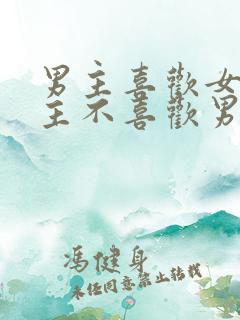 男主喜歡女
主不喜歡男
馮健身
未经同意禁止转载